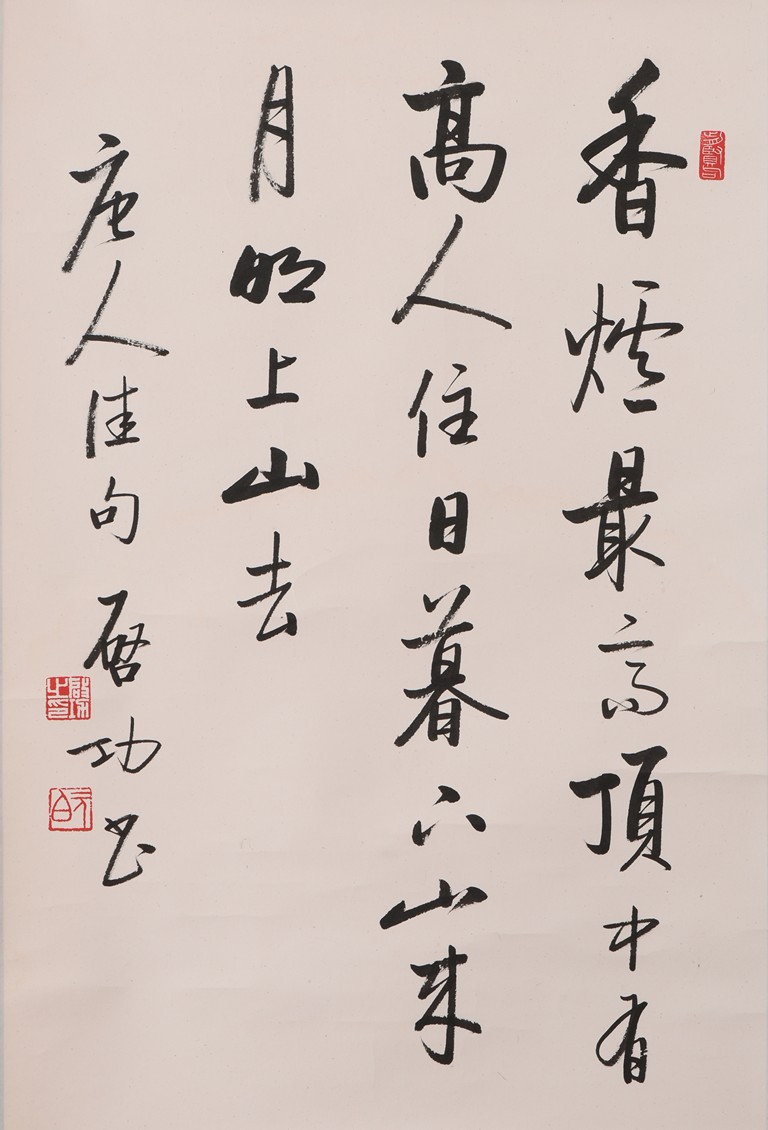 香爐最高頂中有
髙人住日暮下山來
月明上山去
唐人佳句 啓功書
啓功之印
元白